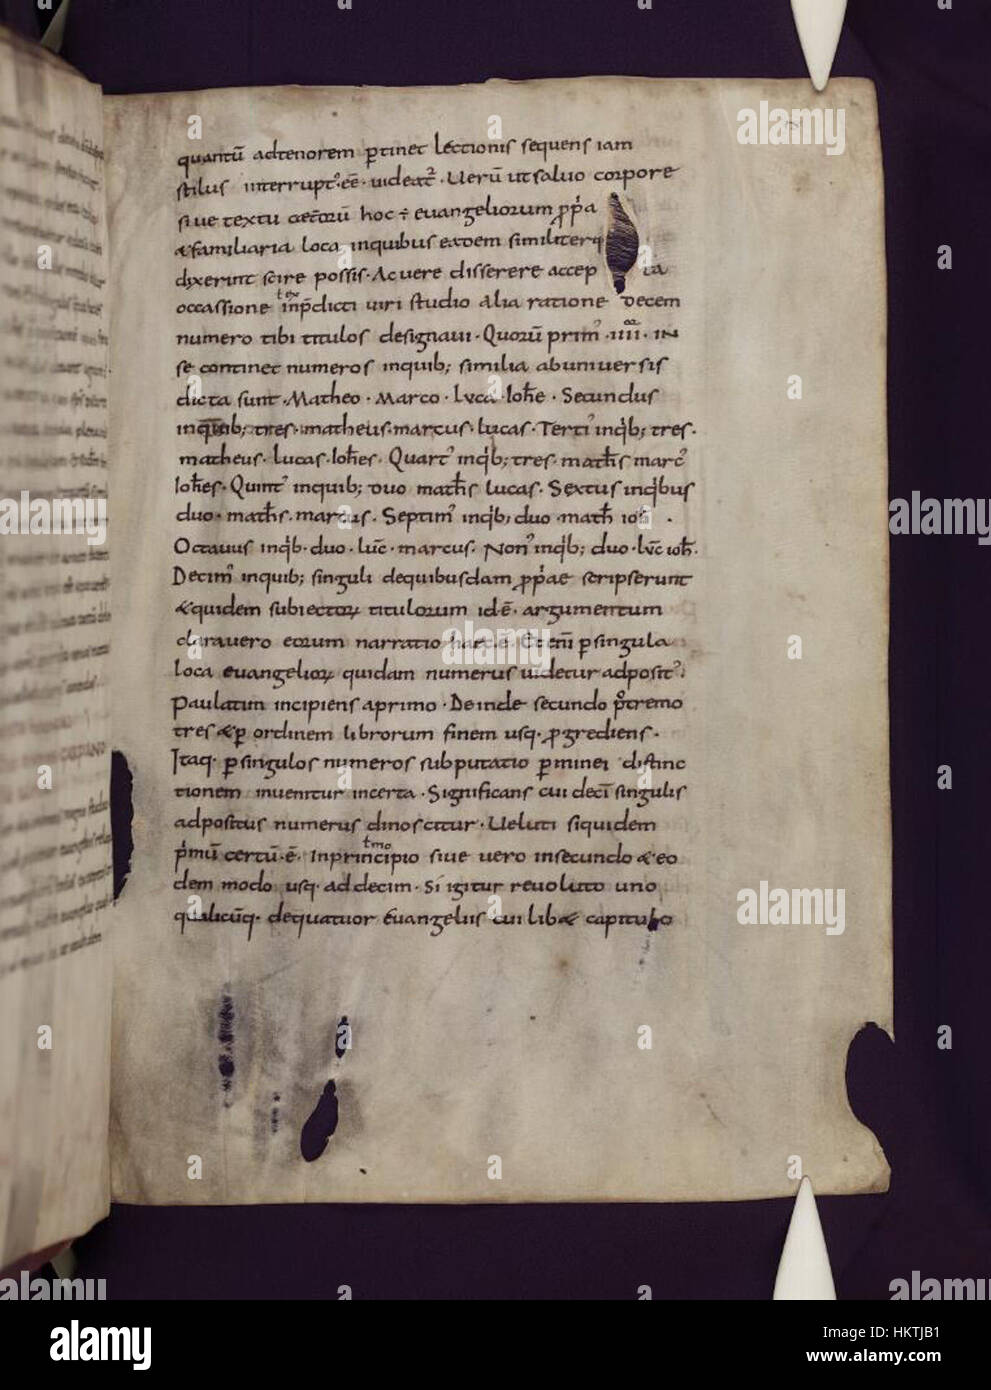 quantū adtenorem ꝑtinet lectionis sequens iam
stilus interrupt᾿ eē᾿ uideat᾿. Uerū ut saluo corpore
siue textu cęt̄orū hoc ÷ euangeliorum ꝓp̄a
&familiaria loca inquibus eadem similiterq
dyxerint scire possis. Ac uere disserere accep ta
occassione inp̄dicti uiri studio alia ratione decem
ł ex
numero tibi titulos designaui. Quorū prim᾿ .iiii. IN
se continet numeros inquib; similia abuniuersis
dicta sunt. Matheo. Marco. Luca. Ioh̄e. Secundus
tres. matheus. marcus. lucas. Terti᾿ inq̇b; tres.
matheus. lucas. Ioh̄es. Quart᾿ inq̇b; tres. math̄s marc᾿
Ioh̄es. Quint᾿ inquib; duo math̄s lucas. Sextus inq̇bus
duo. math̄s. marcus. Septim᾿ inq̇b; duo. math̄ ioh̄.
Octauus inq̇b. duo. luc̄. marcus. Non᾿ inq̇b; duo. luc̄ ioh̄.
Decim᾿ inquib; singuli dequibusdam ꝓp̄ae scripserunt
&quidem subiectoꝝ titulorum idē. argumentum
clarauero eorum narratio haec. Etenī ꝑsingula
loca euangelioꝝ quidam numerus uidetur adposit᾿.
Paulatim incipiens aprimo. Deinde secundo
tres &ꝑ ordinem librorum finem usq. ꝓgrediens.
Itaq. ꝑsingulos numeros subputatio ꝑminei distinc
tionem inuenitur incerta. Significans cui decī singulis
adpositus numerus dinoscitur. Ueluti siquidem
p̄mū certū. ē. Inprincipio siue uero insecundo &eo
ł mo
dem modo usq. addecim. Si igitur reuoluto uno
qualicūq. dequatuor Euangeliis cui lib& capitulo
alamy
Image ID: HKTJB1
www.alamy.com